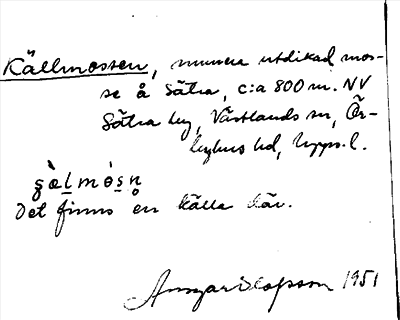 Källmossen, numera utdikad mos-
se å Sätra, c:a 800 m. NV
Sätra by, Västlands sn, Ör-
byhus hd, Upps. l.
Det finns en källa där.
Ansgar Olofsson 1951